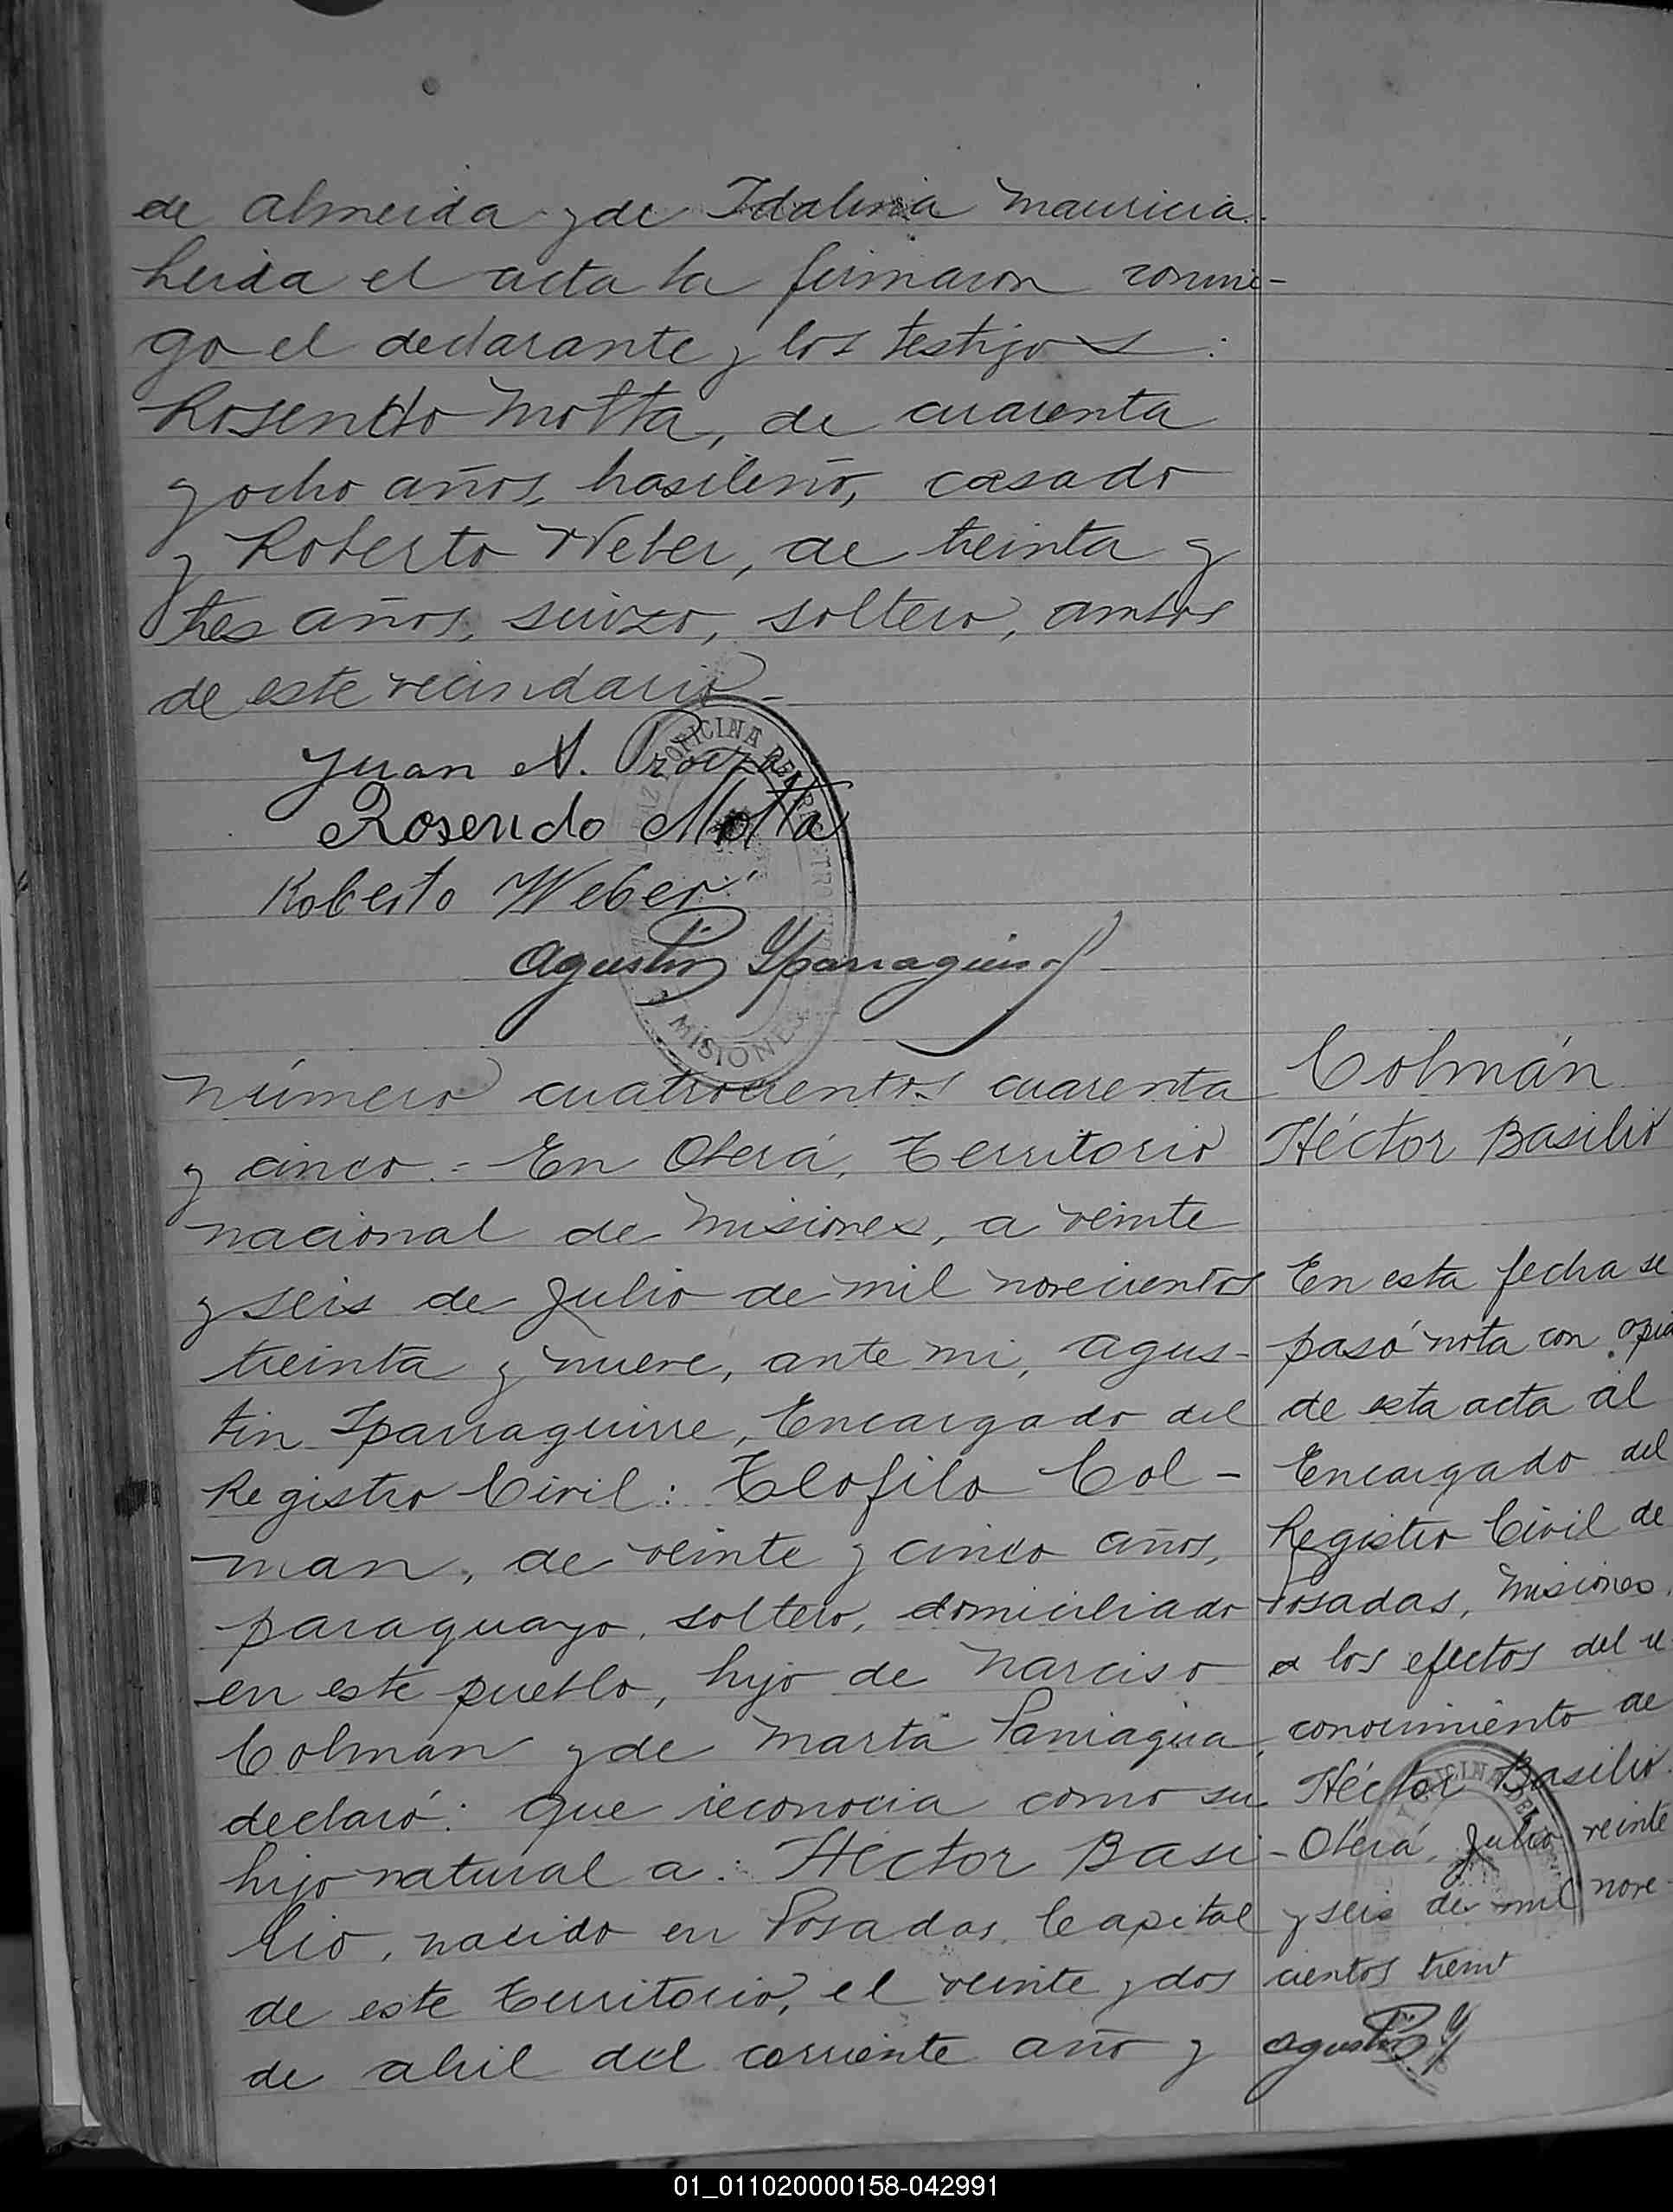 de Almeida y de Idalina Mauricia.
Leída el acta la firmaron conmi-
go el declarante y los testigos:
Rosendo Motta, de cuarenta
y ocho años, brasileño, casado
y Roberto Weber, de treinta y
tres años, suizo, soltero, ambos
de este vecindario-
Juan A.
Rosendo Motta
Roberto Weber
Agustin Yparraguirre
OFICINA DEL REGISTRO
MISIONES
Número cuatrocientos cuarenta
y cinco.- En Oberá, Territorio
nacional de Misiones, a veinte
y seis de Julio de mil novecientos
treinta y nueve, ante mi, Agus-
tin Iparraguirre, Encargado del
Registro Civil: Teofilo Col-
man, de veinte y cinco años,
paraguayo, soltero, domiciliado
en este pueblo, hijo de Narciso
Colman y de Marta Paniagua,
declaró: Que reconocia como su
hijo natural a: Hector Basi-
lio, nacido en Posadas, Capital
de este Territorio, el veinte y dos
de abril del corriente año y
Colmán
Héctor Basilio
En esta fecha se
pasó nota con copia
de esta acta al
Encargado del
Registro Civil de
Posadas, Misiones,
a los efectos del re-
conocimiento de
Héctor Basilio.
Oberá, Julio veinte
y seis de mil nove-
cientos treint
Agustin Y
01_011020000158-042991